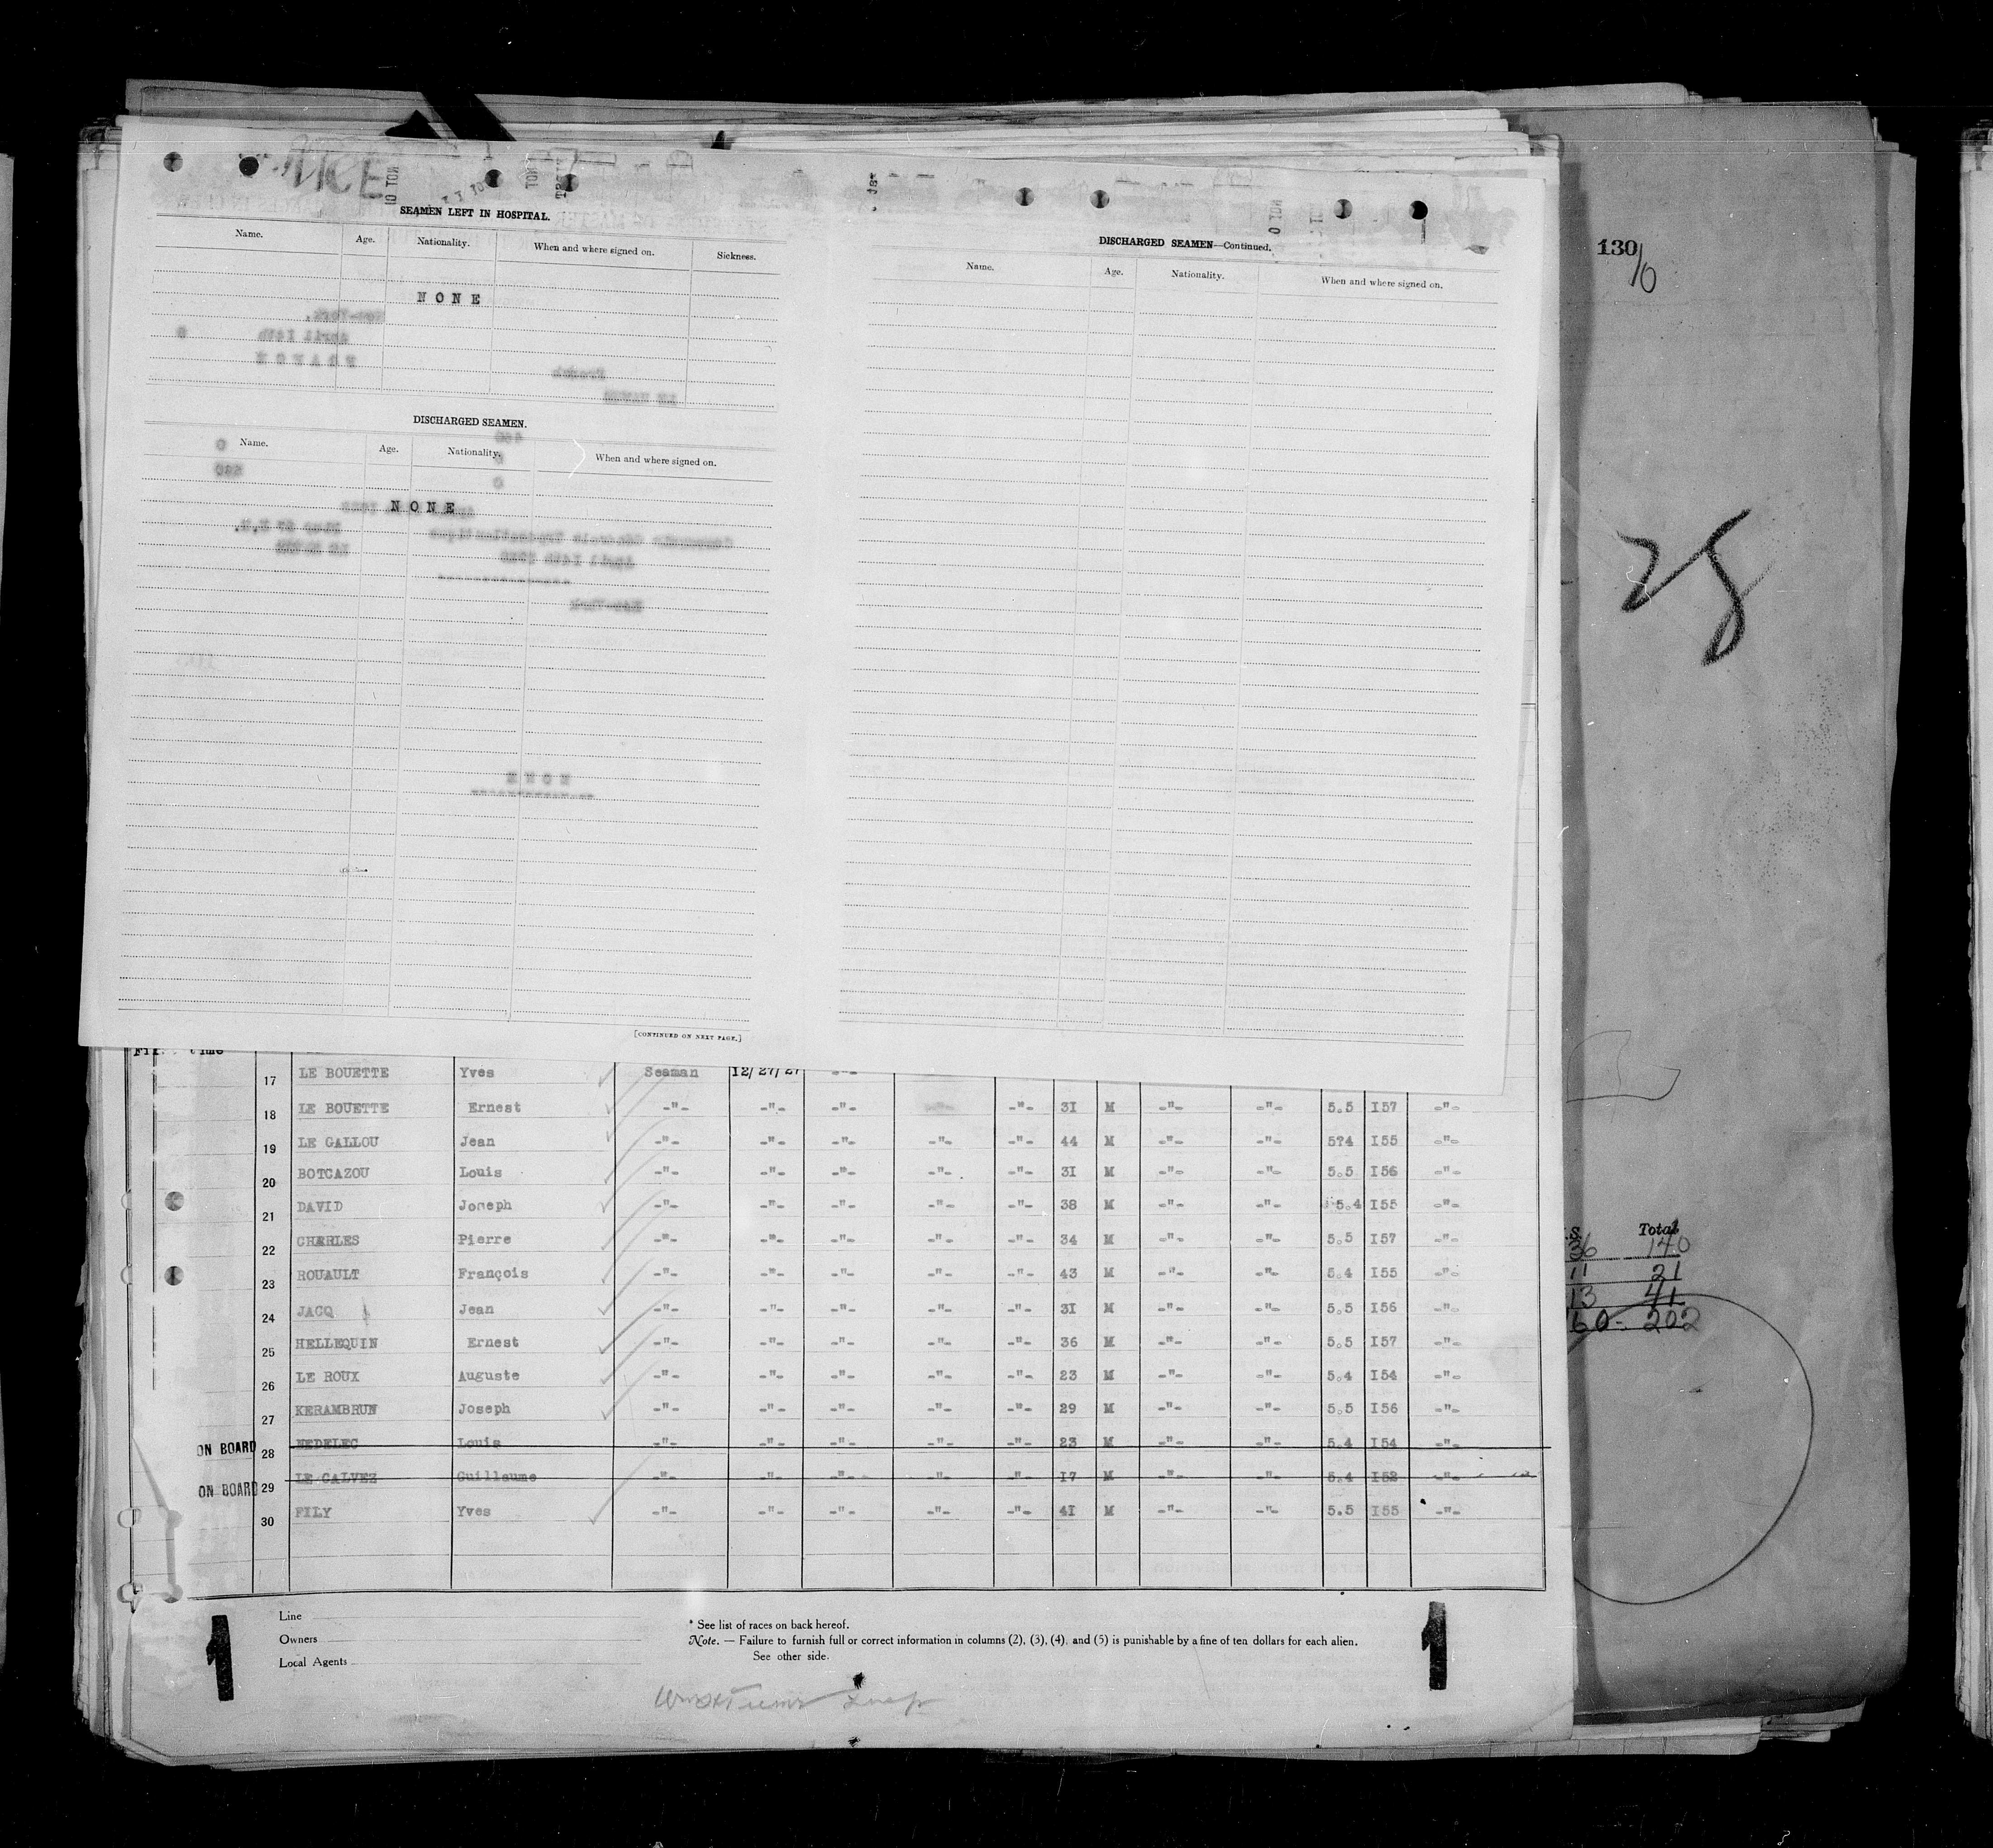 SEAMEN LEFT IN HOSPITAL.
Name. Age. Nationality. When and where signed on. Sickness.
NONE
DISCHARGED SEAMEN.
Name. Age. Nationality. When and where signed on.
NONE
[CONTINUED ON NEXT PAGE.]
DISCHARGED SEAMEN—Continued.
Name. Age. Nationality. When and where signed on.
130
Total
36 140
11 21
13 41
60- 202
time
17 LE BOUETTE Yves Seaman I2/27/27 -"-
18 LE BOUETTE Ernest -"- -"- -"- -"- 3I M -"- -"- 5.5 I57 -"-
19 LE GALLOU Jean -"- -"- -"- -"- -"- 44 M -"- -"- 5?4 I55 -"-
20 BOTCAZOU Louis -"- -"- -"- -"- -"- 3I M -"- -"- 5.5 I56 -"-
21 DAVID Joseph -"- -"- -"- -"- -"- 38 M -"- -"- 5.4 I55 -"-
22 CHARLES Pierre -"- -"- -"- -"- -"- 34 M -"- -"- 5.5 I57 -"-
23 ROUAULT François -"- -"- -"- -"- -"- 43 M -"- -"- 5.4 I55 -"-
24 JACQ Jean -"- -"- -"- -"- -"- 3I M -"- -"- 5.5 I56 -"-
25 HELLEQUIN Ernest -"- -"- -"- -"- -"- 36 M -"- -"- 5.5 I57 -"-
26 LE ROUX Auguste -"- -"- -"- -"- -"- 23 M -"- -"- 5.4 I54 -"-
27 KERAMBRUN Joseph -"- -"- -"- -"- -"- 29 M -"- -"- 5.5 I56 -"-
ON BOARD 28 NEDELEC Louis -"- -"- -"- -"- -"- 23 M -"- -"- 5.4 I54 -"-
ON BOARD 29 LE CALVEZ Guillaume -"- -"- -"- -"- -"- I7 M -"- -"- 5.4 I52 -"-
30 FILY Yves -"- -"- -"- -"- -"- 4I M -"- -"- 5.5 I55 -"-
Line
Owners
Local Agents
* See list of races on back hereof.
Note. — Failure to furnish full or correct information in columns (2), (3), (4), and (5) is punishable by a fine of ten dollars for each alien.
See other side.
1
1